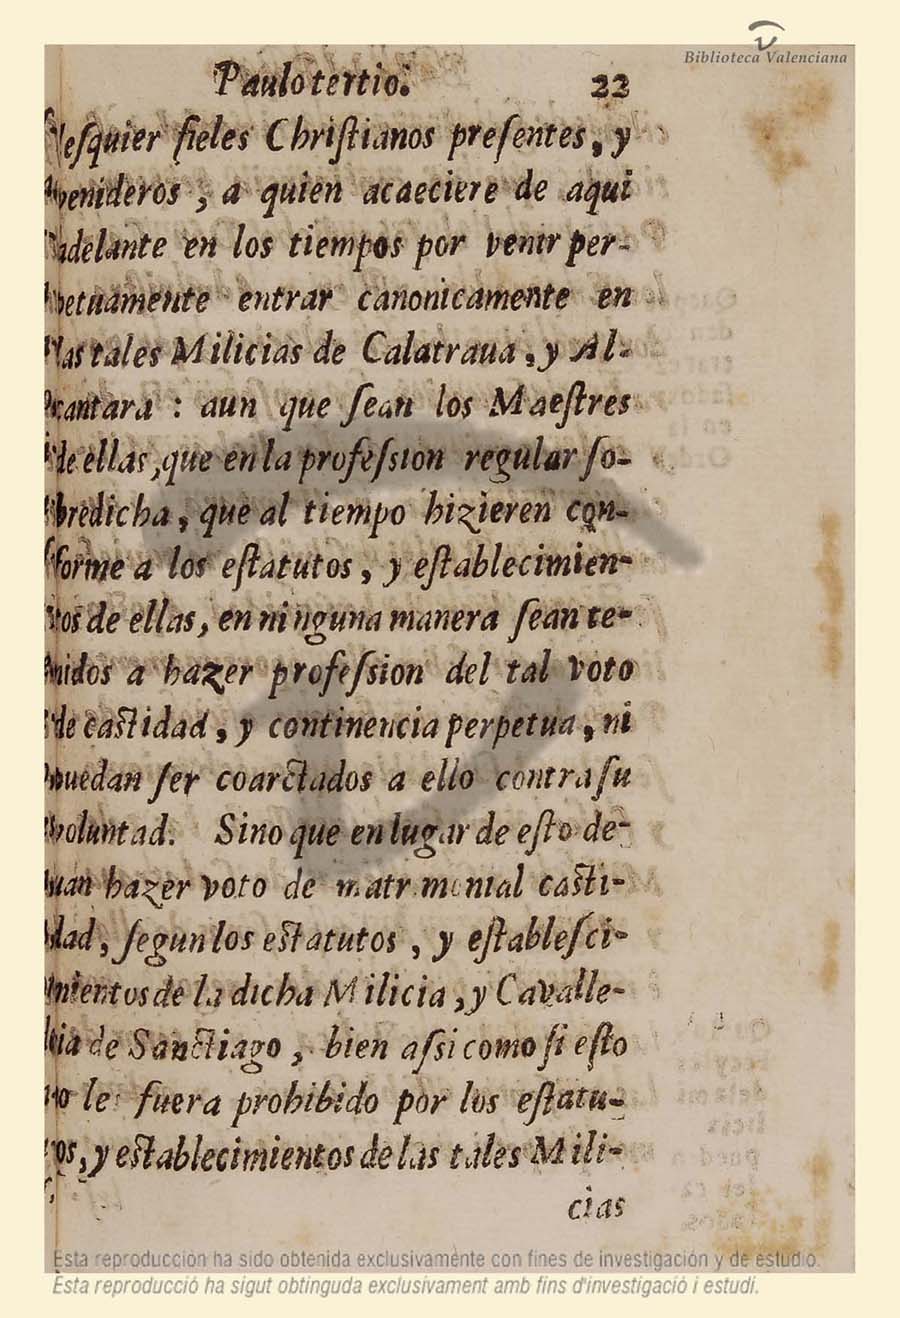 Biblioteca Valenciana
Paulo tertio. 22
lesquier fieles Christianos presentes, y
venideros, a quien acaeciere de aqui
adelante en los tiempos por venir per-
petuamente entrar canonicamente en
las tales Milicias de Calatraua, y Al-
cantara : aun que sean los Maestres
de ellas, que en la profession regular so-
bredicha, que al tiempo hizieren con-
forme a los estatutos, y establecimien-
tos de ellas, en ninguna manera sean te-
nidos a hazer profession del tal voto
de castidad, y continencia perpetua, ni
puedan ser coarctados a ello contra su
voluntad. Sino que en lugar de esto de-
uan hazer voto de matrimonial casti-
dad, segun los estatutos, y establesci-
mientos de la dicha Milicia, y Cavalle-
ria de Sanctiago, bien assi como si esto
no le fuera prohibido por los estatu-
tos, y establecimientos de las tales Mili-
cias
Esta reproducción ha sido obtenida exclusivamente con fines de investigación y de estudio.
Esta reproducció ha sigut obtinguda exclusivament amb fins d'investigació i estudi.